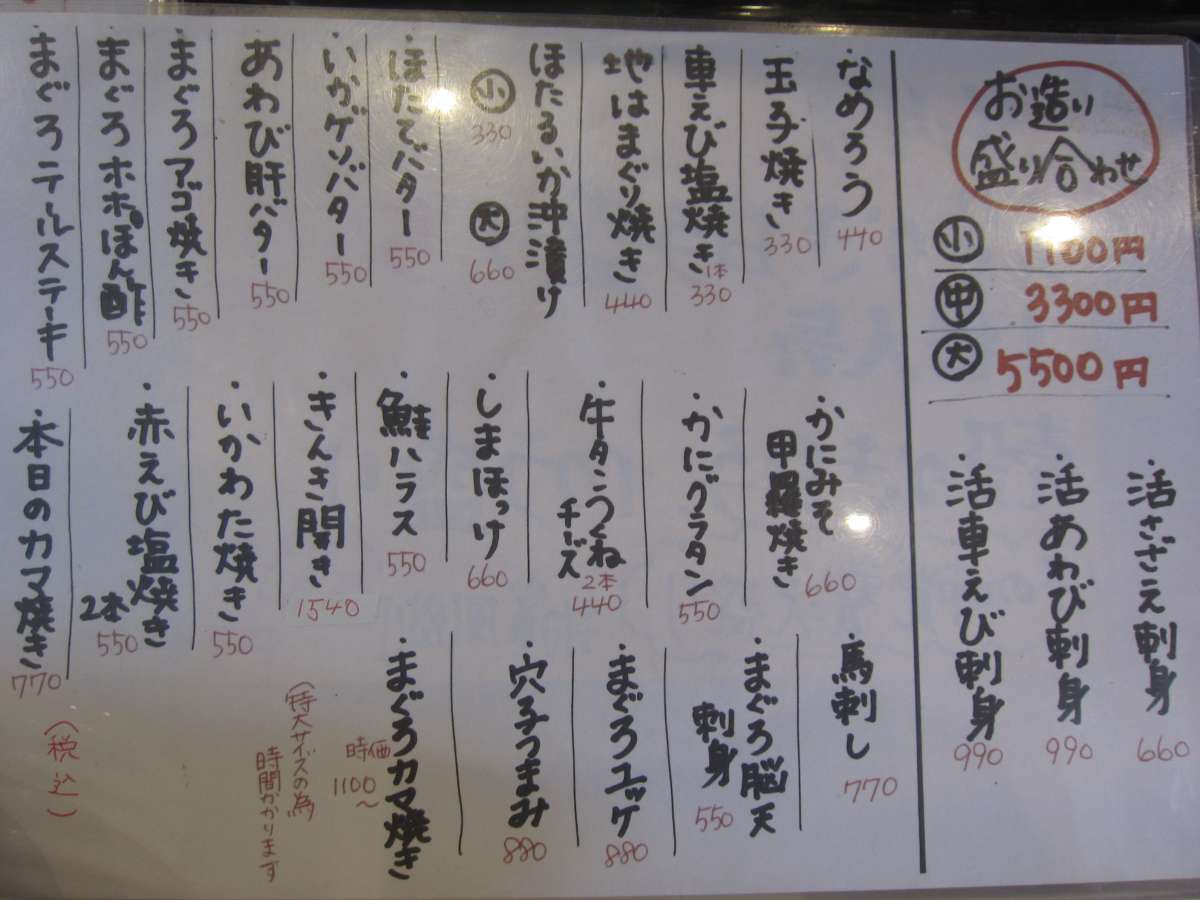 お造り
盛り合わせ
小 1100円
中 3300円
大 5500円
・活さざえ刺身 660
・活あわび刺身 990
・活車えび刺身 990
・なめろう 440
・玉子焼き 330
・車えび塩焼き 1本 330
・地はまぐり焼き 440
・ほたるいか沖漬け
小 330
大 660
・ほたてバター 550
・いかゲソバター 550
・あわび肝バター 550
・まぐろアゴ焼き 550
・まぐろホホぽん酢 550
・まぐろテールステーキ 550
・かにみそ
甲羅焼き 660
・かにグラタン 550
・牛タンつくね
チーズ 2本 440
・しまほっけ 660
・鮭ハラス 550
・きんき開き 1540
・いかわた焼き 550
・赤えび塩焼き
2本 550
・本日のカマ焼き 770
・馬刺し 770
・まぐろ脳天
刺身 550
・まぐろユッケ 880
・穴子つまみ 880
・まぐろカマ焼き
時価
1100〜
(特大サイズの為
時間かかります
(税込)